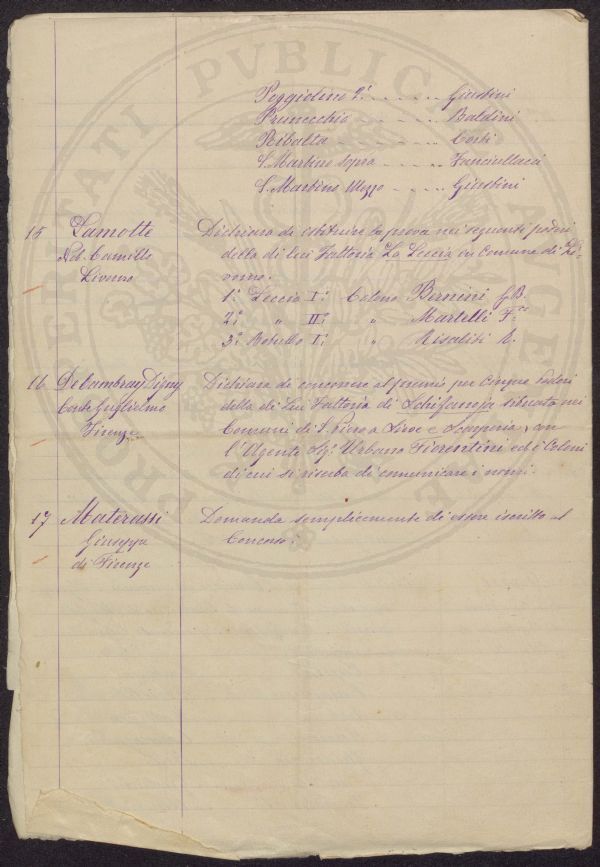 Poggiolino 2º - - - - - Giustini
Prunecchio - - - - - Baldini
Ribalta - - - - - - - Corti
S. Martino sopra - - - - Fanciullacci
S. Martino Mezzo - - - - Giustini
15 Lamotte
Nob. Camillo
Livorno
Dichiara di istituire la prova nei seguenti poderi
della di lui Fattoria La Leccia in Comune di Li-
vorno.
1º. Leccia Iº. Colono Bernini G.B.
2º. " IIº. " Martelli F.co
3º. Botullo Iº. " Risaliti A.
16 De Cambray Digny
Conte Guglielmo
Firenze
Dichiara di concorrere al premio per Cinque Poderi
della di Lui Fattoria di Schifanoja situata nei
Comuni di S. Piero a Sieve e Scarperia, con
l'Agente Sig. Urbano Fiorentini ed i Coloni
di cui si riserba di comunicare i nomi.
17 Materassi
Giuseppe
di Firenze
Domanda semplicemente di essere iscritto al
Concorso.